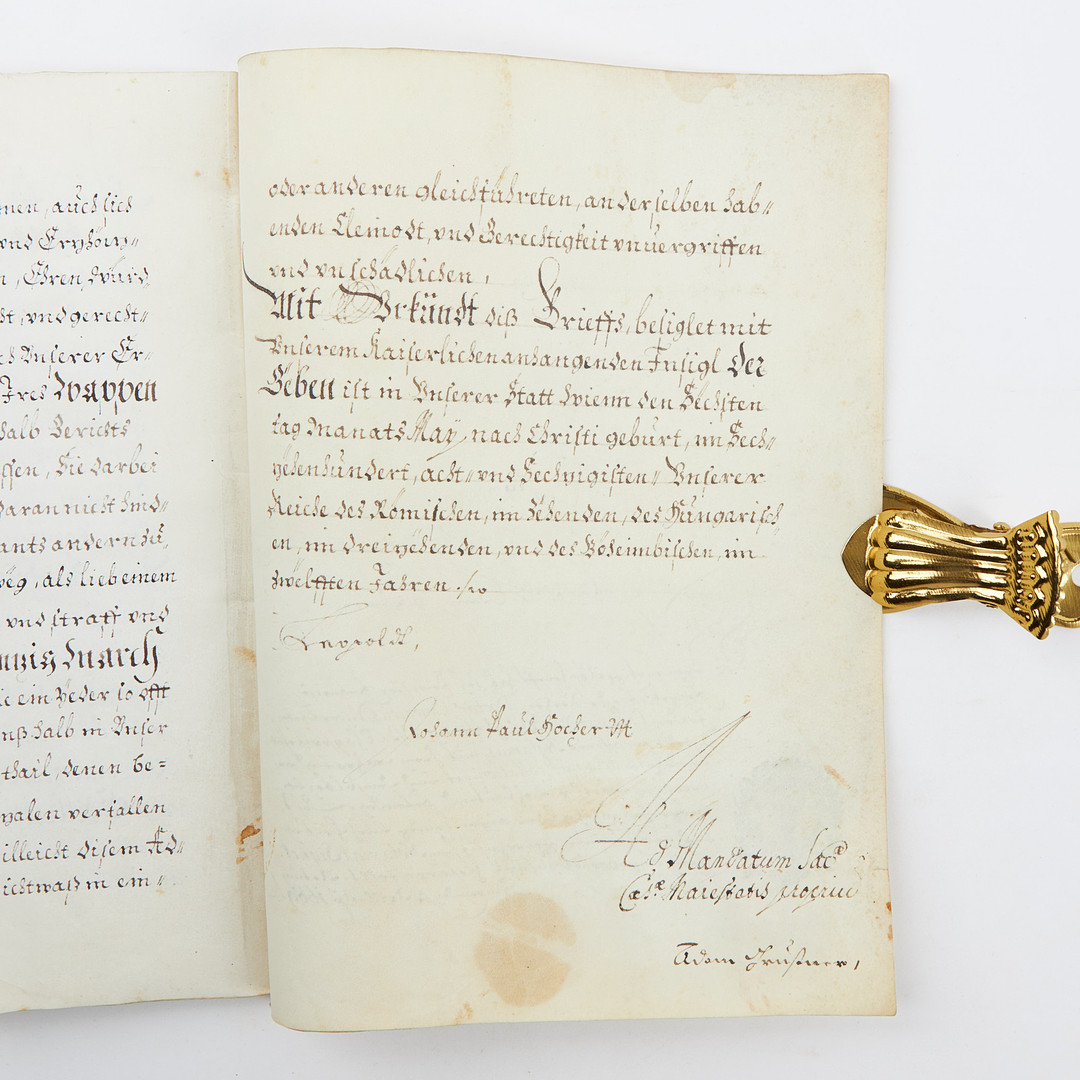 nen, auch sich
vnd Ertzhöny-
n, Ehren, Würd,
dt, vnd gerecht-
ts Vnserer Er-
Ires Wappen
halb Berichts
ssen, Sie darbei
daran nicht hind-
andern zu,
weg, als lieb einem
vnd straff vnd
March
ie ein Yeder so offt
nßhalb in Vnser
thail, denen be-
malen verfallen
illeicht disem Ad-
ichtwaß in ein-
oder anderen gleichfuhreten, an derselben hab-
enden Clemodt, vnd Gerechtigkeit vnuergriffen
vnd vnschädlichen,
Mit Vrkündt diß Brieffs, besiglet mit
Vnserem Kaiserlichen anhangenden Insigl Der
Geben ist in Vnserer Statt Wienn den Sechsten
tag Manats May, nach Christi geburt, im Sech-
zehenhundert, acht- vnd Sechzigisten- Vnserer
Reiche des Römischen, im Zehenden, des Hungarisch
en, im dreizehenden, vnd des Böheimbischen, im
zwelfften Jahren
Leopoldt,
Johann Paul Hocher
Ad Mandatum Sac.ae
Caes.ae Maiestatis proprium
Adam